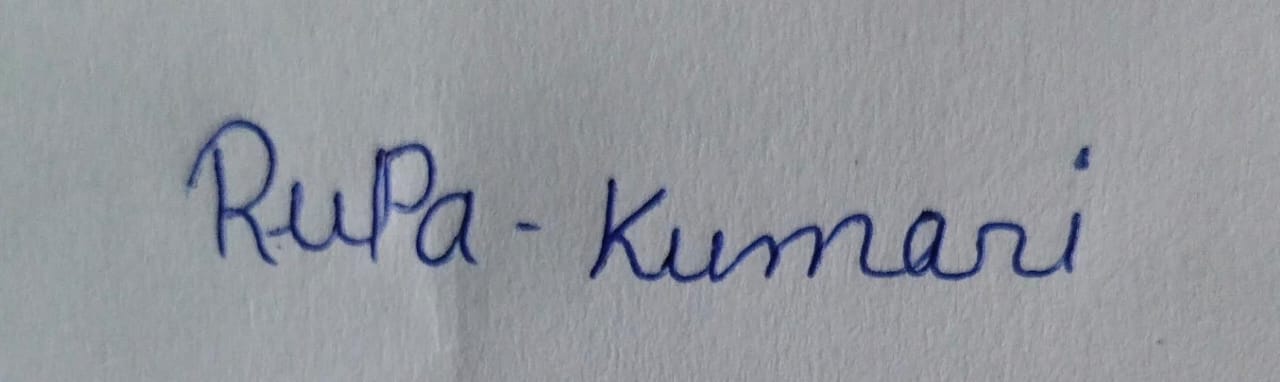 RuPa - Kumari